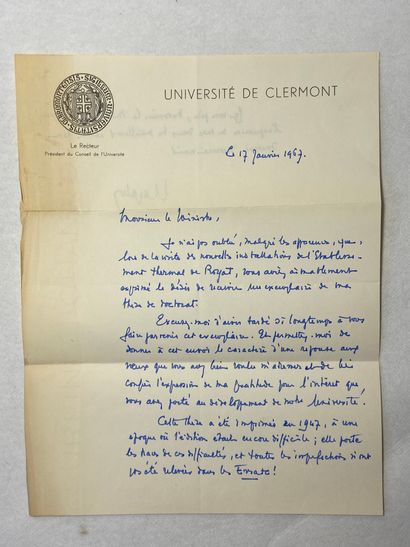 UNIVERSITÉ DE CLERMONT
Le Recteur
Président du Conseil de l'Université
Le 17 Janvier 1967.
Monsieur le Ministre,
Je n'ai pas oublié, malgré les apparences, que,
lors de la visite des nouvelles installations de l'Etablisse-
ment thermal de Royat, vous aviez aimablement
exprimé le désir de recevoir un exemplaire de ma
thèse de doctorat.
Excusez-moi d'avoir tardé si longtemps à vous
faire parvenir cet exemplaire. Et permettez-moi de
donner à cet envoi le caractère d'une réponse aux
vœux que vous avez bien voulu m'adresser et de lui
confier l'expression de ma gratitude pour l'intérêt que
vous avez porté au développement de notre Université.
Cette thèse a été imprimée en 1947, à une
époque où l'édition était encore difficile ; elle porte
les traces de ces difficultés, et toutes les imperfections n'ont
pas été relevées dans les Errata !